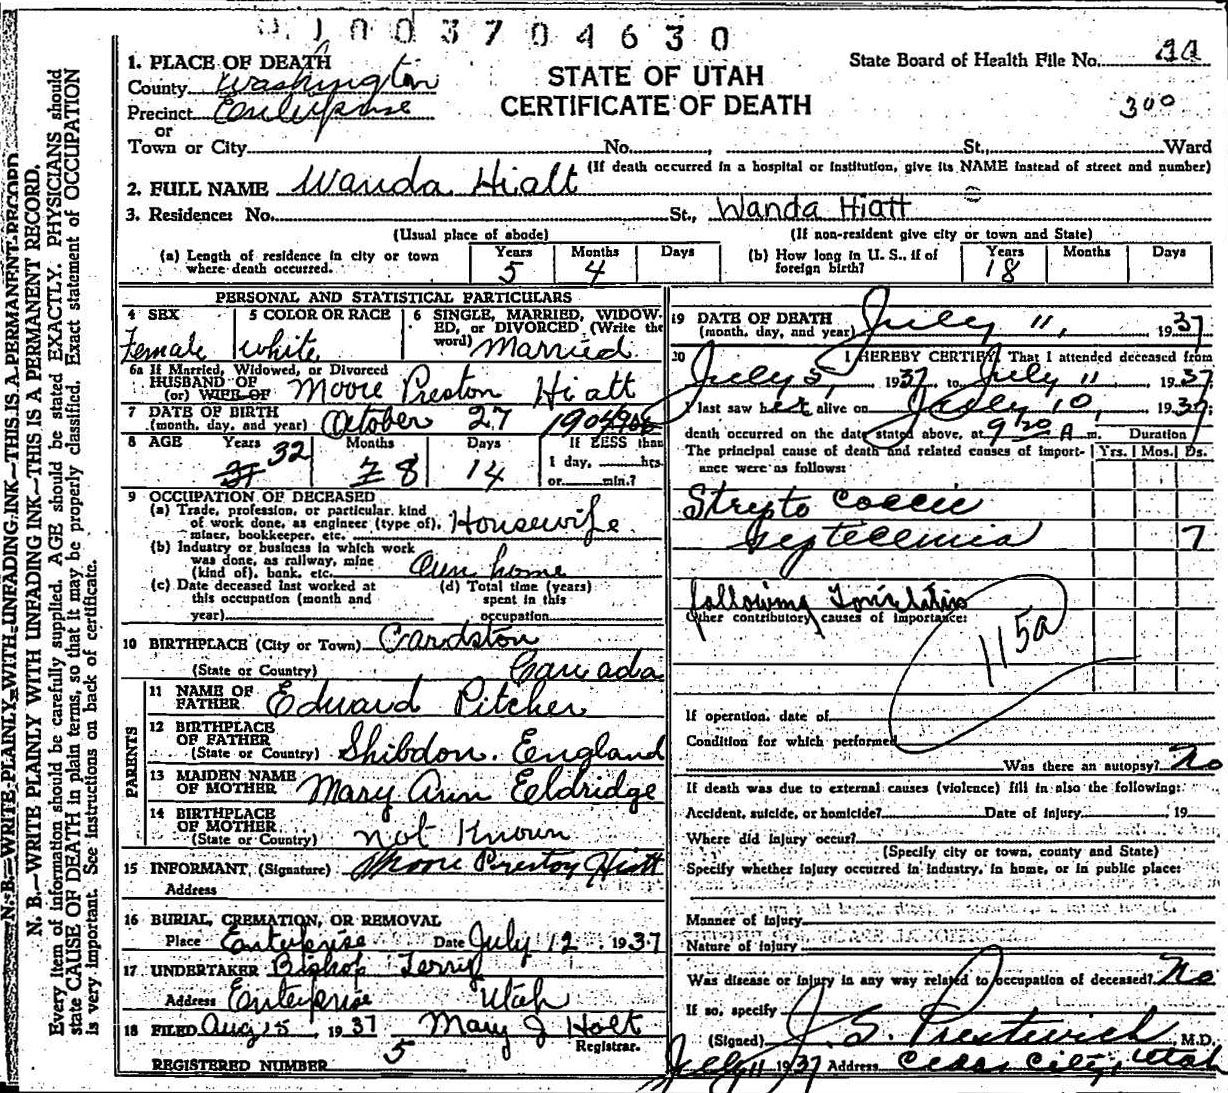 01003704630
1. PLACE OF DEATH
County Washington
Precinct Enterprise
or
Town or City No. St., Ward
STATE OF UTAH
CERTIFICATE OF DEATH
State Board of Health File No.
300
(If death occurred in a hospital or institution, give its NAME instead of street and number)
2. FULL NAME Wanda Hiatt
3. Residence: No. St., Wanda Hiatt
(Usual place of abode) (If non-resident give city or town and State)
(a) Length of residence in city or town where death occurred. Years 5 Months 4 Days
(b) How long in U. S., if of foreign birth? Years 18 Months Days
PERSONAL AND STATISTICAL PARTICULARS
4 SEX Female
5 COLOR OR RACE white
6 SINGLE, MARRIED, WIDOWED, or DIVORCED (Write the word) Married
6a If Married, Widowed, or Divorced
HUSBAND OF
(or) WIFE OF Moore Preston Hiatt
7 DATE OF BIRTH
(month, day, and year) October 27 1904
8 AGE Years 32 Months 8 Days 14
If LESS than
1 day, hrs.
or min.?
9 OCCUPATION OF DECEASED
(a) Trade, profession, or particular kind
of work done, as engineer (type of),
miner, bookkeeper, etc. Housewife
(b) Industry or business in which work
was done, as railway, mine
(kind of), bank, etc. Own home
(c) Date deceased last worked at
this occupation (month and
year)
(d) Total time (years)
spent in this
occupation
10 BIRTHPLACE (City or Town) Cardston
(State or Country) Canada
PARENTS
11 NAME OF
FATHER Edward Pitcher
12 BIRTHPLACE
OF FATHER
(State or Country) Shibdon. England
13 MAIDEN NAME
OF MOTHER Mary Ann Eeldridge
14 BIRTHPLACE
OF MOTHER
(State or Country) not Known
15 INFORMANT, (Signature) Moore Preston Hiatt
Address
16 BURIAL, CREMATION, OR REMOVAL
Place Enterprise Date July 12, 1937
17 UNDERTAKER Bishop Terry
Address Enterprise Utah
18 FILED Aug 5 1937 Mary J Holt
Registrar.
REGISTERED NUMBER 5
19 DATE OF DEATH
(month, day, and year) July 11, 1937
20 I HEREBY CERTIFY, That I attended deceased from
July 5, 1937, to July 11, 1937
I last saw her alive on July 10, 1937,
death occurred on the date stated above, at 9 20 A m. Duration
The principal cause of death and related causes of importance were as follows: Yrs. Mos. Ds.
Strepto coccic
Septecemia 7
following Tonsilatis
Other contributory causes of importance:
115a
If operation, date of
Condition for which performed
Was there an autopsy? No
If death was due to external causes (violence) fill in also the following:
Accident, suicide, or homicide? Date of injury 19
Where did injury occur?
(Specify city or town, county and State)
Specify whether injury occurred in industry, in home, or in public place:
Manner of Injury
Nature of injury
Was disease or injury in any way related to occupation of deceased? No
If so, specify
(Signed) J. S. Prestwich, M.D.
July 11 1937 Address Cedar City, Utah
N. B.—WRITE PLAINLY WITH UNFADING INK—THIS IS A PERMANENT RECORD
N. B.—WRITE PLAINLY WITH UNFADING INK—THIS IS A PERMANENT RECORD.
Every item of information should be carefully supplied. AGE should be stated EXACTLY. PHYSICIANS should
state CAUSE OF DEATH in plain terms, so that it may be properly classified. Exact statement of OCCUPATION
is very important. See instructions on back of certificate.